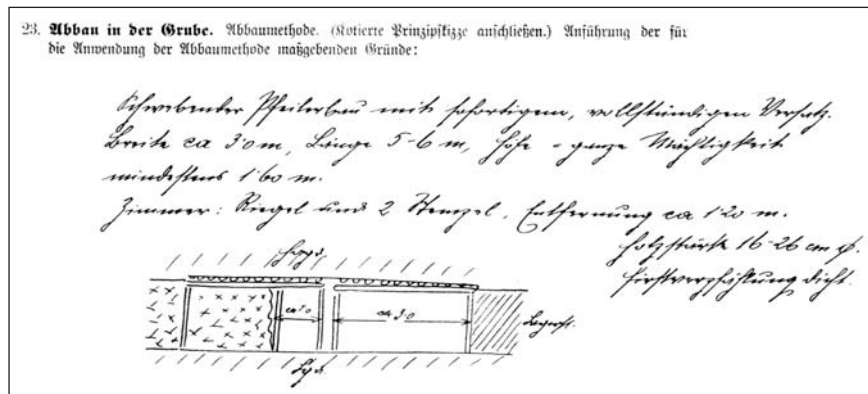 23. Abbau in der Grube. Abbaumethode. (Kotierte Prinzipskizze anschließen.) Anführung der für
die Anwendung der Abbaumethode maßgebenden Gründe:
Schwebender Pfeilerbau mit sofortigem, vollständigen Versatz.
Breite ca 3·0 m, Länge 5-6 m, Höhe = ganze Mächtigkeit
mindestens 1·60 m.
Zimmer: Riegel und 2 Stempel, Entfernung ca 1·20 m.
Holzstärke 16-26 cm ø.
Firstverpfählung dicht.
Hgd.
ca 1·0
ca 3·0
Lagerst.
Lgd.